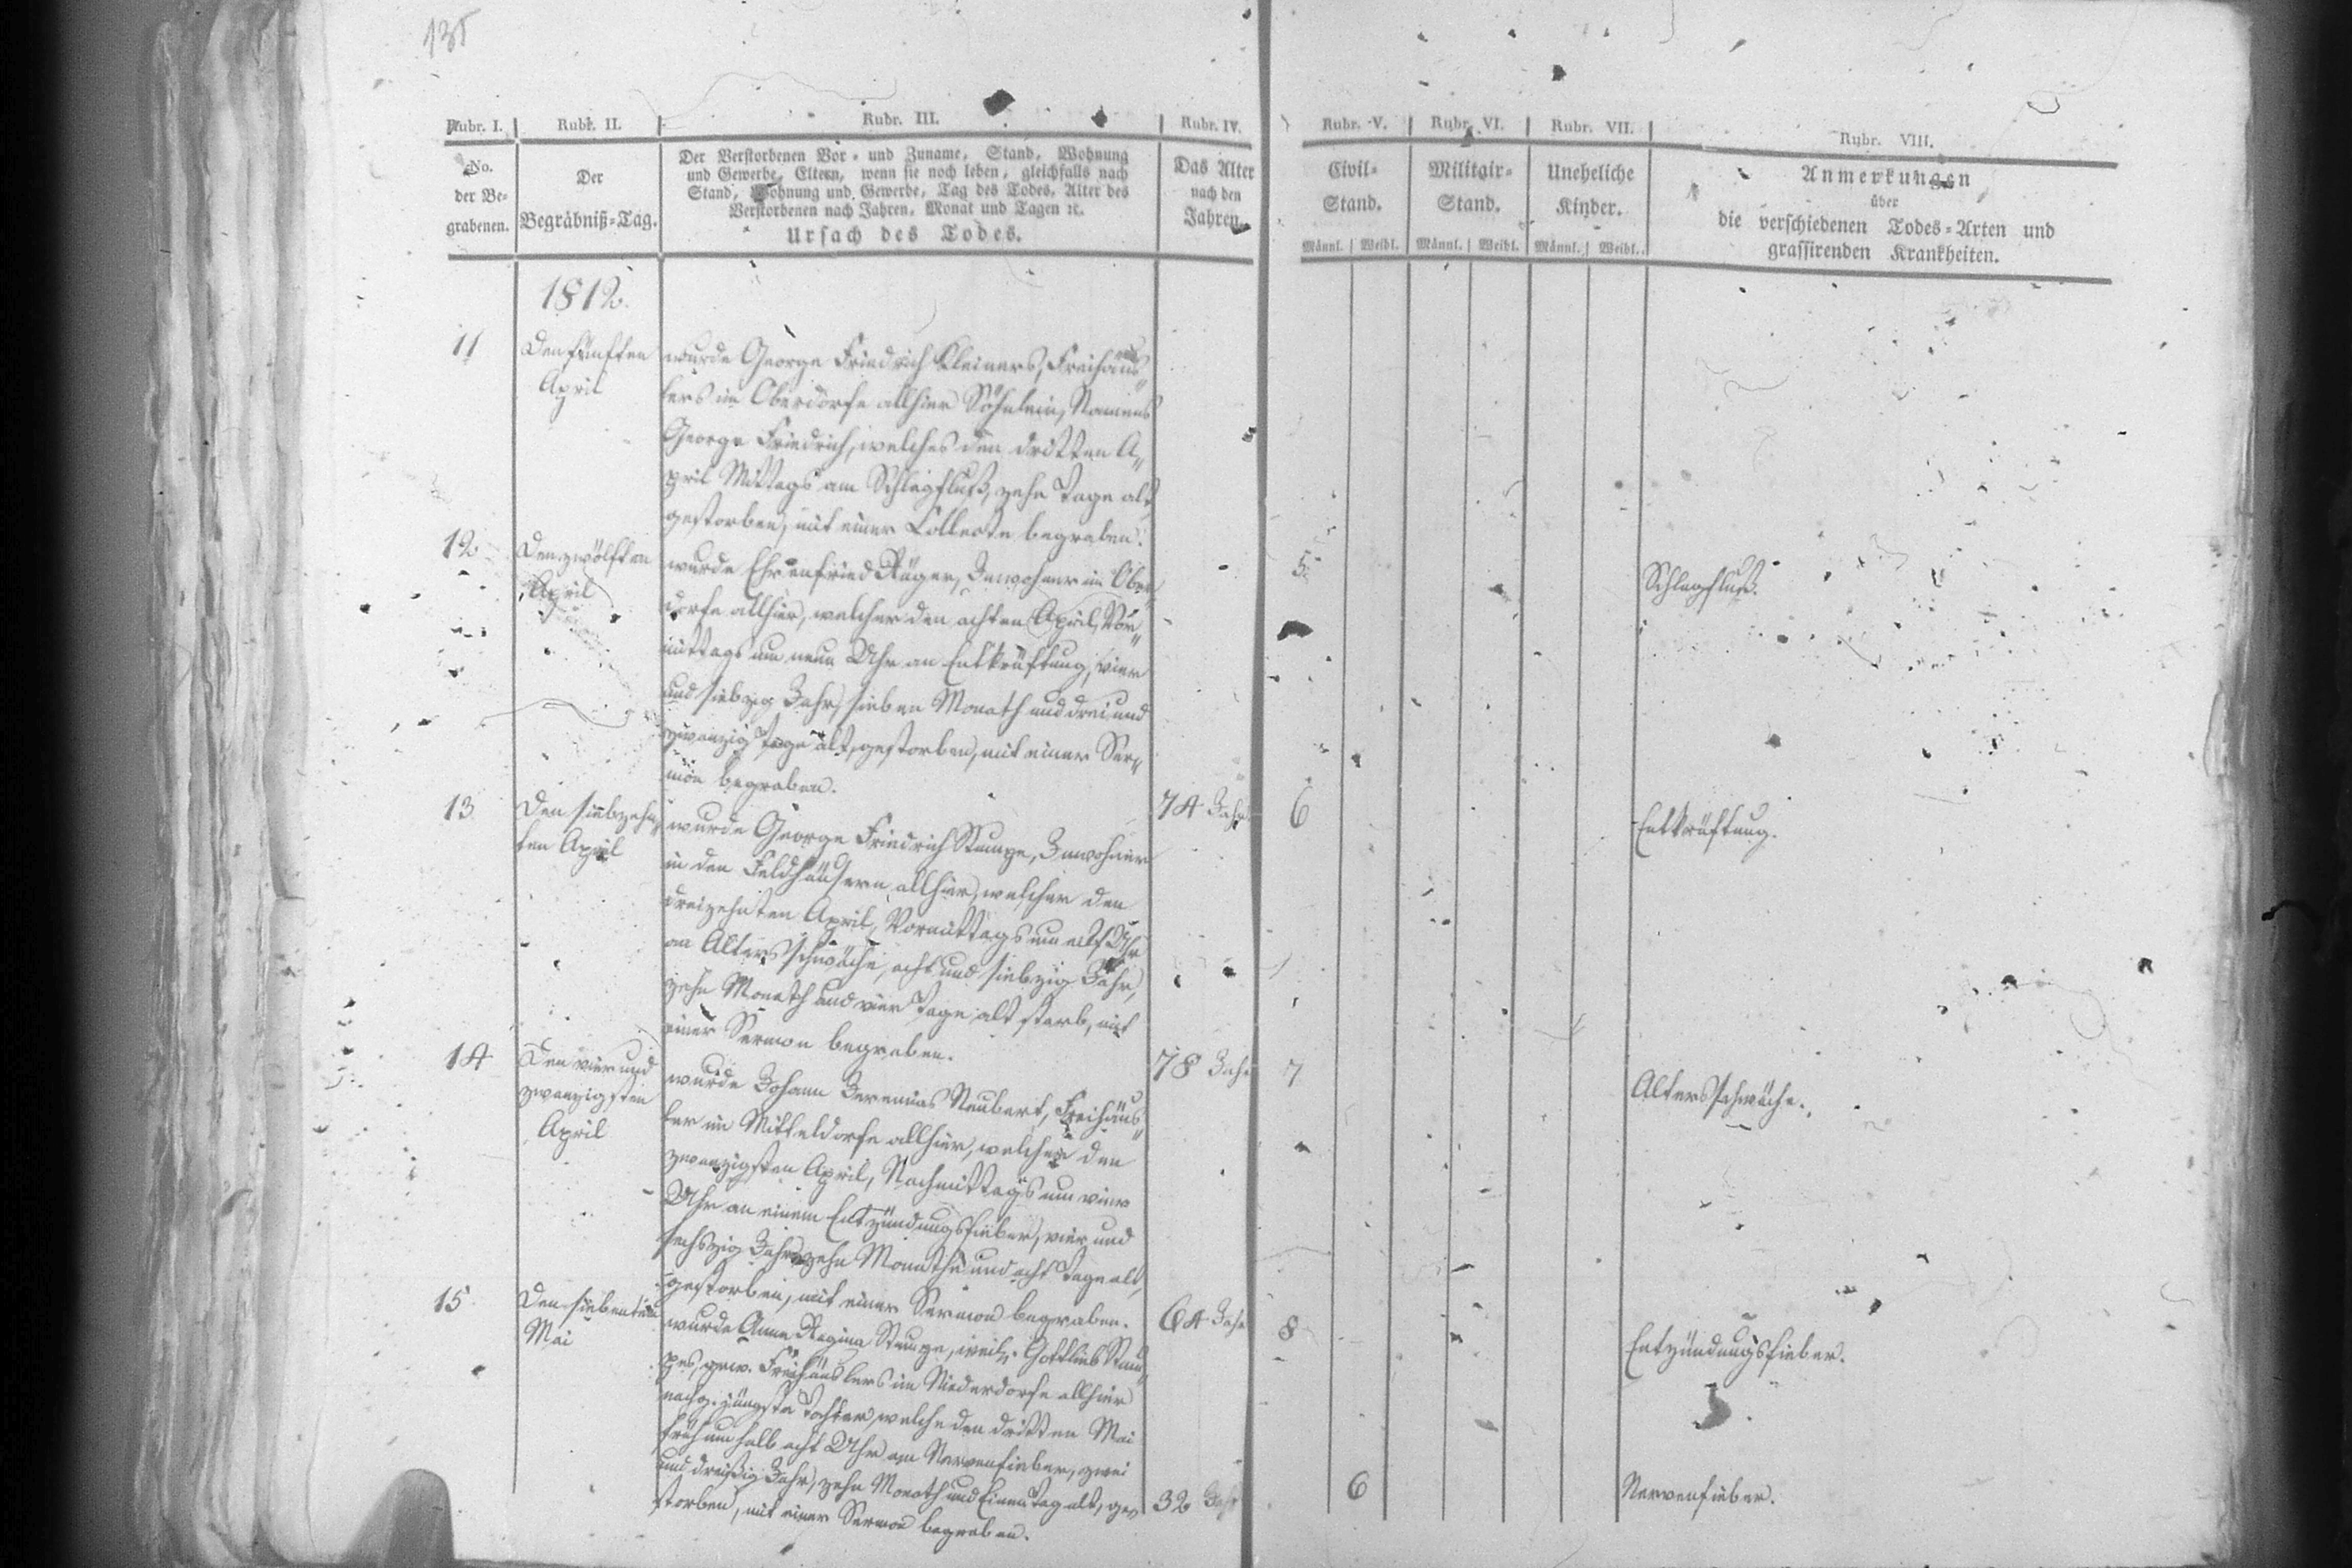 135
Rubr. I. Rubr. II. Rubr. III. Rubr. IV. Rubr. V. Rubr. VI. Rubr. VII. Rubr. VIII.
No.
der Be-
grabenen.
Der
Begräbniß-Tag.
Der Verstorbenen Vor- und Zuname, Stand, Wohnung
und Gewerbe, Eltern, wenn sie noch leben, gleichfalls nach
Stand, Wohnung und Gewerbe, Tag des Todes, Alter des
Verstorbenen nach Jahren, Monat und Tagen ꝛc.
Ursach des Todes.
Das Alter
nach den
Jahren.
Civil-
Stand.
Männl. Weibl.
Militair-
Stand.
Männl. Weibl.
Uneheliche
Kinder.
Männl. Weibl.
Anmerkungen
über
die verschiedenen Todes-Arten und
grassirenden Krankheiten.
1812.
11
Den fünften
April
wurde George Friedrich Kleiners, Freihäus-
lers im Oberdorfe allhier Söhnlein, Namens
George Friedrich, welches den dritten A-
pril Mittags am Schlagfluß, zehn Tage alt
gestorben, mit einer Collecte begraben.
5.
Schlagfluß.
12
Den zwölften
April
wurde Ehrenfried Rüger, Inwohner im Ober-
dorfe allhier, welcher den achten April, Vor-
mittags um neun Uhr an Entkräftung, vier
und siebzig Jahr, sieben Monath und drei und
zwanzig Tage alt, gestorben, mit einer Ser-
mon begraben.
74 Jahr
6
Entkräftung.
13
Den siebzehn-
ten April
wurde George Friedrich Stumpe, Inwohner
in den Feldhäusern allhier, welcher den
dreizehnten April, Vormittags um elf Uhr
an Altersschwäche, acht und siebzig Jahr,
zehn Monath und vier Tage alt starb, mit
einer Sermon begraben.
78 Jahr
7
Altersschwäche.
14
Den vier und
zwanzigsten
April
wurde Johann Jeremias Neubert, Freihäus-
ler im Mitteldorfe allhier, welcher den
zwanzigsten April, Nachmittags um vier
Uhr an einem Entzündungsfieber, vier und
sechszig Jahr, zehn Monathe und acht Tage alt,
gestorben, mit einer Sermon begraben.
64 Jahr
8
Entzündungsfieber.
15
Den siebenten
Mai
wurde Anna Regina Stumpe, weil. Gottlieb Stum-
pes, gew. Freihäuslers im Niederdorfe allhier
nachg. jüngste Tochter, welche den dritten Mai
früh um halb acht Uhr am Nervenfieber, zwei
und dreißig Jahr, zehn Monath und Einen Tag alt, ge-
storben, mit einer Sermon begraben.
32 Jahr
6
Nervenfieber.